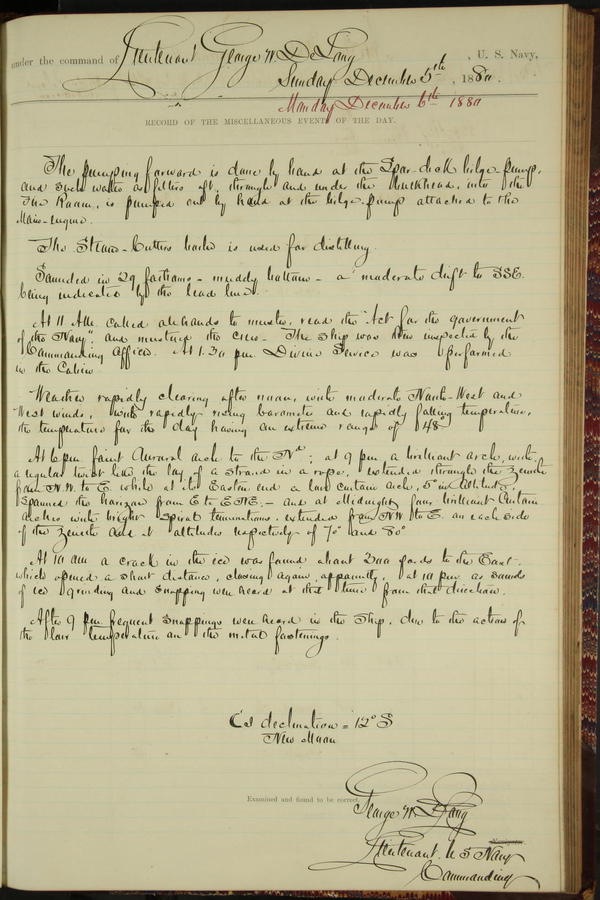 under the command of Lieutenant George W. DeLong, U. S. Navy,
Sunday December 5th, 1880.
Monday December 6th 1880
RECORD OF THE MISCELLANEOUS EVENTS OF THE DAY.
The pumping forward is done by hand at the Spar-deck bilge-pump,
and such water as filters aft, through and under the bulkhead, into the
Fire Room, is pumped out by hand at the bilge-pump attached to the
Main-engine.
The Steam-Cutters boiler is used for distilling.
Sounded in 29 fathoms - muddy bottom - a moderate drift to SSE.
being indicated by the lead line.
At 11 AM. called all hands to muster, read the "Act for the government
of the Navy", and mustered the crew. The Ship was then inspected by the
Commanding Officer. At 1.30 pm Divine Service was performed
in the Cabin.
Weather rapidly clearing after noon, with moderate North-West and
West winds, with rapidly rising barometer and rapidly falling temperature,
the temperature for the day having an extreme range of 48°
At 6 pm faint Auroral arch to the Nd; at 9 pm a brilliant arch, with
a regular twist like the lay of a strand in a rope, extended through the Zenith
from N.W. to E while at its Eastern end a low curtain arch, 5° in altitude,
spanned the horizon from E to ENE. - and at Midnight four brilliant Curtain
arches with bright spiral terminations, extended from NW to E. on each side
of the Zenith and at altitudes respectively of 70° and 80°
At 10 am a crack in the ice was found about 300 yards to the East.
which opened a short distance, closing again, apparently, at 10 pm as sounds
of ice grinding and snapping were heard at that time from that direction.
After 9 pm frequent snappings were heard in the Ship, due to the action of
the low temperature on the metal fastenings.
Cs declination = 12° S
New Moon
Examined and found to be correct.
George W. DeLong
Lieutenant U S Navy
Commanding